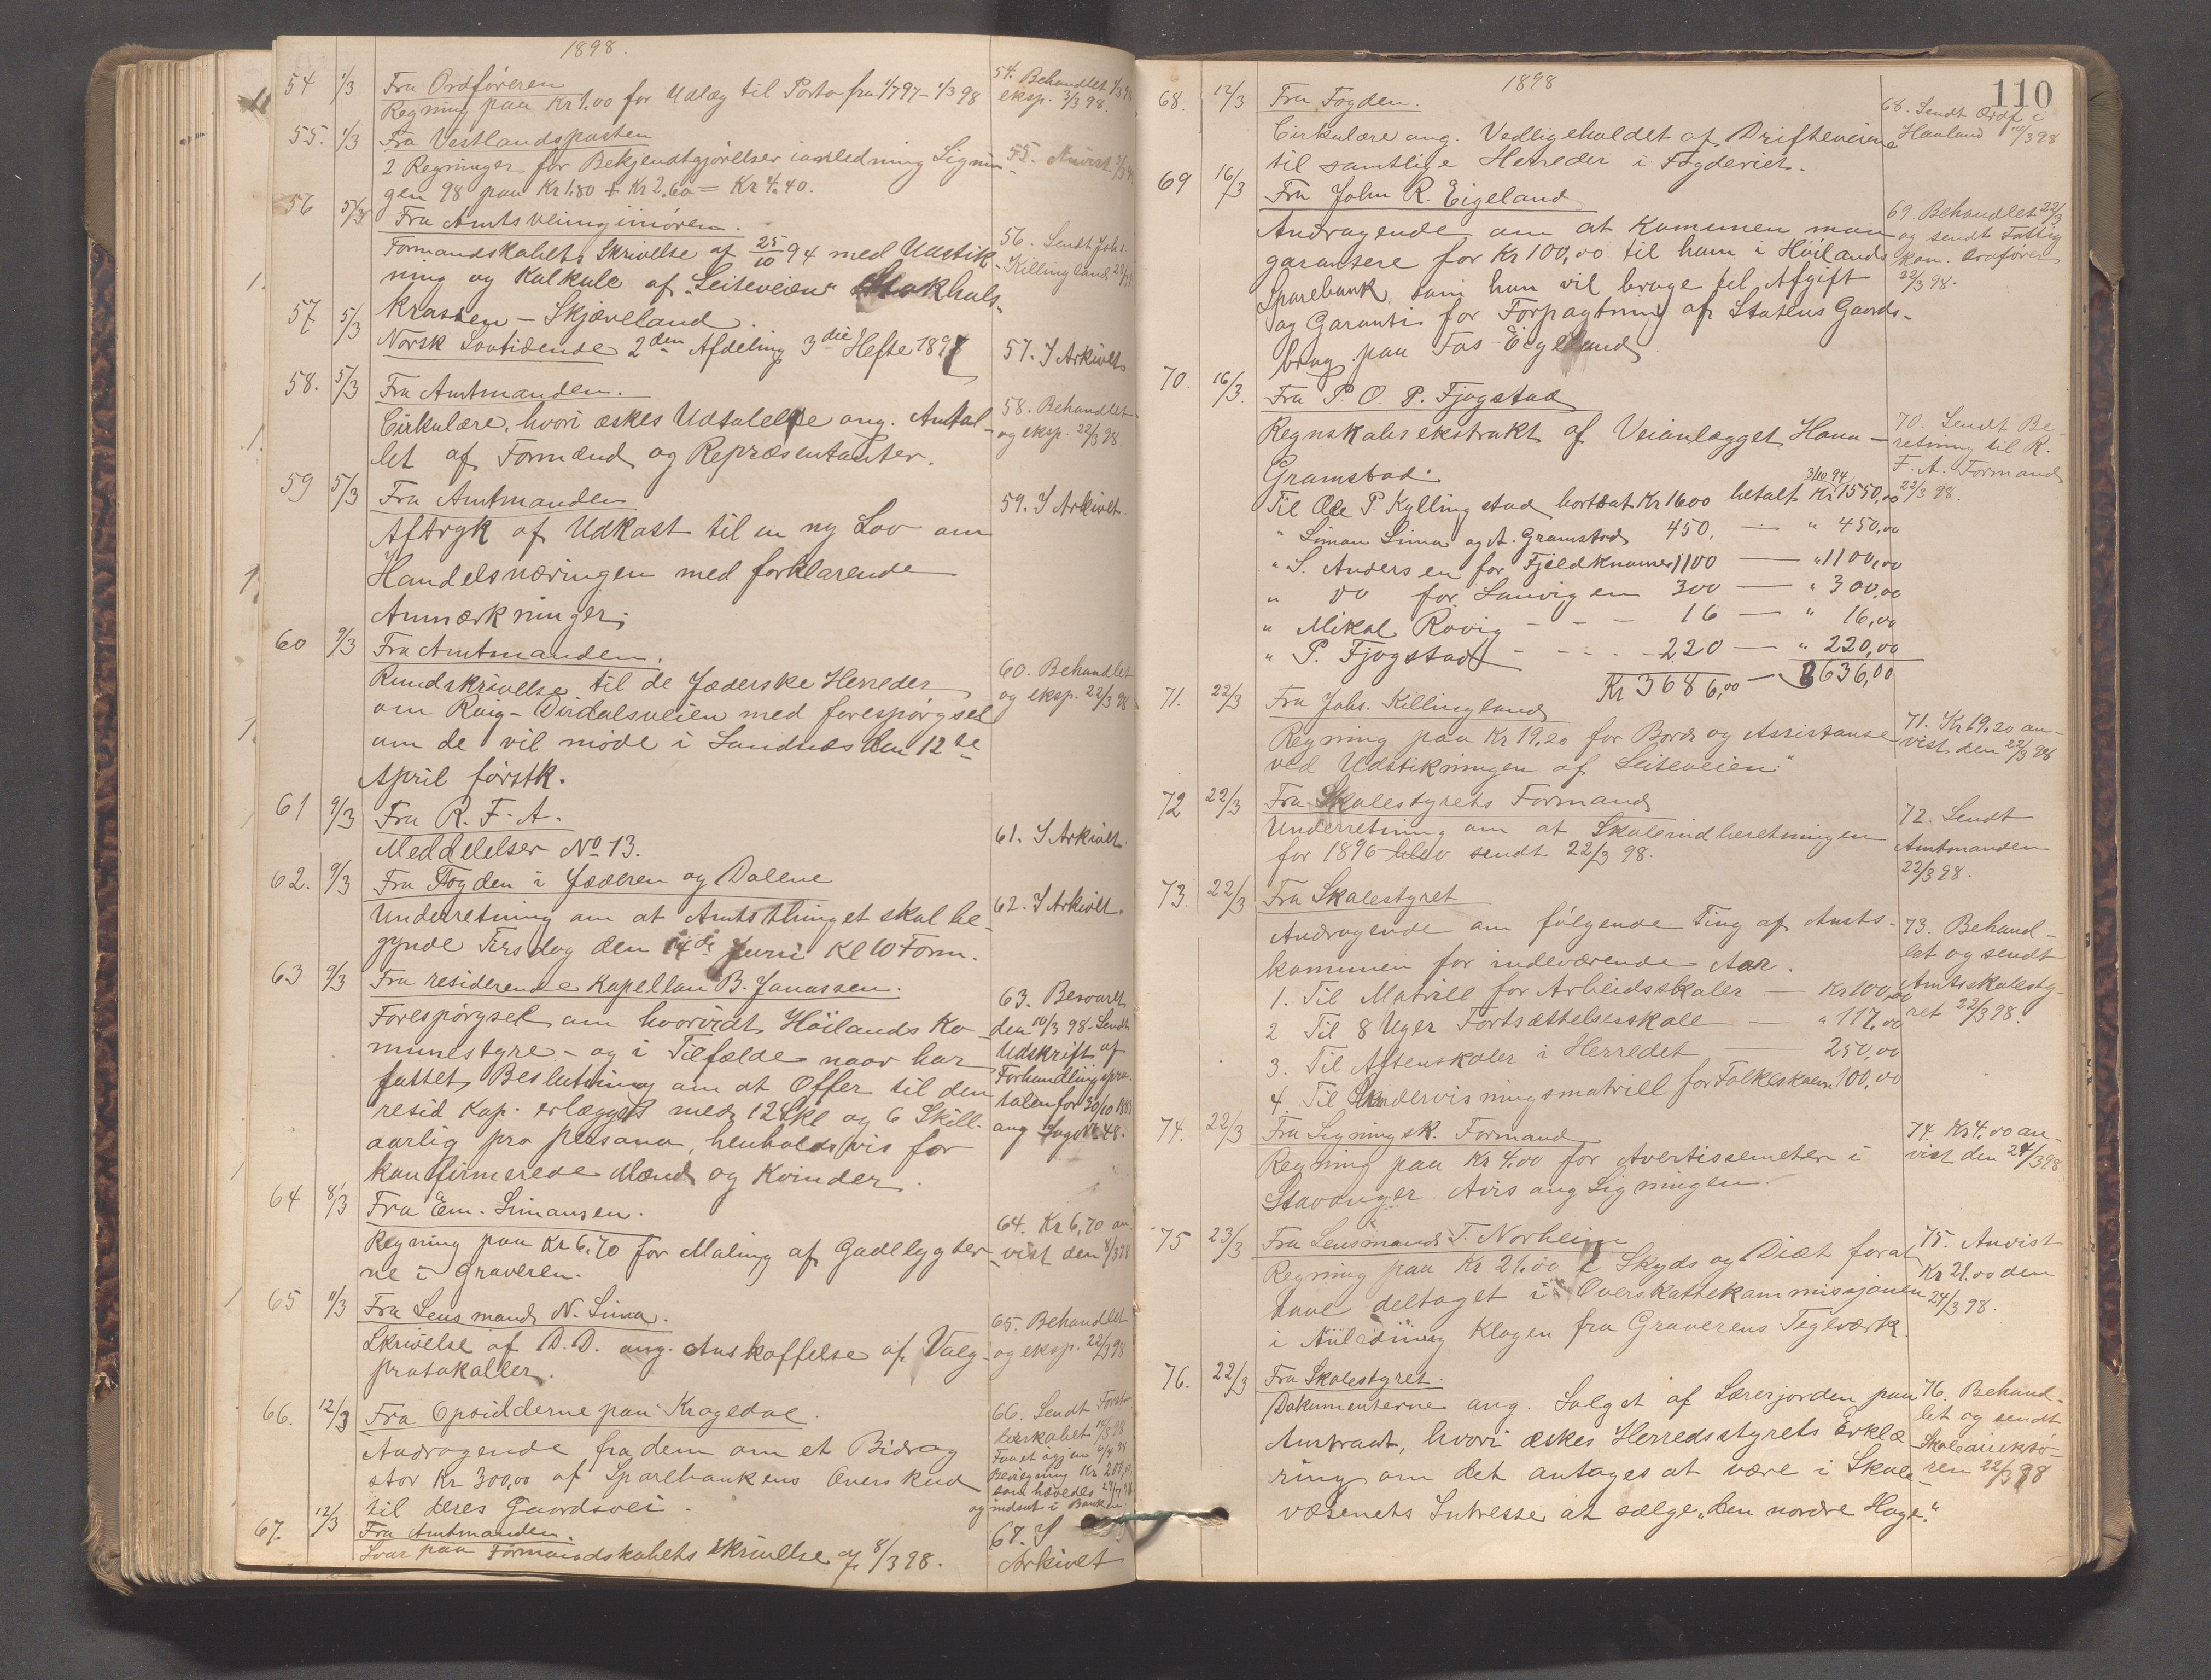 1898.
54 1/3 Fra Ordføreren
Regning paa Kr 1.00 for Udlæg til Porto fra 1/7 97 - 1/3 98
54. Behandlet 1/3 98
eksp. 3/3 98.
55. 1/3 Fra Vestlandsposten
2 Regninger for Bekjendtgjørelser i anledning Lignin-
gen 98 paa Kr 1.80 + Kr 2.60 = Kr 4.40.
55. Anvist 3/3 98
56 5/3 Fra Amtsveiingeniøren.
Formandskabets Skrivelse af 25/10 94 med Udstik-
ning og Kalkule af "Leiteveien" Stokhols-
krossen - Skjæveland.
56. Sendt Johs.
Killingland 22/3
57 5/3 Norsk Lovtidende 2den Afdeling 3die Hefte 1897
57. I Arkivet
58. 5/3 Fra Amtmanden.
Cirkulære, hvori æskes Udtalelse ang. Antal-
let af Formænd og Repræsentanter.
58. Behandlet
og eksp. 22/3 98.
59 5/3 Fra Amtmanden
Aftryk af Udkast til en ny Lov om
Handelsnæringen med forklarende
Anmærkninger.
59. I Arkivet.
60 9/3 Fra Amtmanden.
Rundskrivelse til de Jæderske Herreder
om Røig-Dirdalsveien med forespørgsel
om de vil møde i Sandnæs den 12te
April førstk.
60. Behandlet
og eksp. 22/3 98
61 9/3 Fra R. F. A.
Meddelelser No 13.
61. I Arkivet.
62. 9/3 Fra Fogden i Jæderen og Dalene
Underretning om at Amtsthinget skal be-
gynde Tirsdag den 14de Juni Kl 10 Form.
62. I Arkivet.
63 9/3 Fra residerende Kapellan B. Jonassen.
Forespørgsel om hvorvidt Höilands Ko-
munestyre - og i Tilfælde naar har
fattet Beslutning om at Offer til den
resid Kap. erlægges med 12 Skl og 6 Skill.
aarlig pro persona, henholdsvis for
konfirmerede Mænd og Kvinder.
63. Besvaret
den 10/3 98 - Sendt
Udskrift af
Forhandlingspro-
tokolen for 30/10 1883
ang Sag No 48.
64 8/3 Fra Em. Simonsen.
Regning paa Kr 6,70 for Maling af Gadelygter-
ne i Graveren.
64. Kr 6,70 an-
vist den 8/3 98
65 11/3 Fra Lensmand N. Sima.
Skrivelse af D.D. ang. Anskaffelse af Valg-
protokoller.
65. Behandlet
og eksp. 22/3 98
66. 12/3 Fra Opsidderne paa Kragedal.
Andragende fra dem om et Bidrag
stor Kr 300,00 af Sparebankens Overskud
til deres Gaardsvei.
66. Sendt Forstan-
derskabet 14/3 98
Faaet igjen 6/4 98
Bevilgning Kr 200,00
som hævedes
og indsat i Banken.
67. 12/3 Fra Amtmanden.
Svar paa Formandskabets Skrivelse af 8/3 98.
67. I
Arkivet
110
1898
68. 12/3 Fra Fogden.
Cirkulære ang. Vedligeholdet af Drifteveiene
til samtlige Herreder i Fogderiet.
68. Sendt Ordf i
Haaland 14/3 98
69 16/3 Fra John R. Eigeland
Andragende om at Kommunen maa
garantere for Kr 100,00 til ham i Höilands
Sparebank, som han vil bruge til Afgift
og Garanti for Forpagtning af Statens Gaards-
brug paa Fos Eigeland
69. Behandlet 22/3
og sendt Fattig
kom. Ordfører
22/3 98.
70. 16/3. Fra P. O. P. Fjogstad
Regnskabsekstrakt af Veianlægget Hana -
Gramstad.
Til Ole P Kyllingstad bortsat Kr 1600 betalt 3/10 94 Kr 1550,00
" Simon Sima og A. Gramstad 450, — " 450,00
" S. Andersen for Fjeldknauser 1100 — " 1100,00
" do for Sanvigen 300 — " 300,00
" Mikal Rovig - - - 16 — " 16,00
" P. Fjogstad - - - - 220 — " 220,00
Kr 3686,00 — 3636,00
70. Sendt Be-
retning til R.
F. A. Formand
22/3 98.
71. 22/3 Fra Johs. Killingland
Regning paa Kr 19,20 for Bord og Assistanse
ved Udstikningen af Leiteveien"
71. Kr 19.20 an-
vist den 22/3 98
72 22/3 Fra Skolestyrets Formand
Underretning om at Skoleindberetningen
for 1896 blev sendt 22/3 98.
72. Sendt
Amtmanden
22/3 98.
73. 22/3 Fra Skolestyret
Andragende om følgende Ting af Amts-
kommunen for indeværende Aar.
1. Til Matriel for Arbeidsskoler — Kr 100,00
2 Til 8 Uger Fortsættelsesskole — " 117,00
3. Til Aftenskoler i Herredet — 250,00
4. Til Undervisningsmatriell for Folkeskolen 100,00
73. Behand-
let og sendt
Amtsskolesty-
ret 22/3 98.
74. 22/3 Fra Ligningsk. Formand
Regning paa Kr 4.00 for Avertissemeter i
Stavanger Avis ang Ligningen.
74. Kr 4,00 an-
vist den 24/3 98
75 23/3 Fra Lensmand T. Norheim
Regning paa Kr 21.00 i Skyds og Diæt for at
have deltaget i Overskattekommissjonen
i Anledning Klagen fra Graverens Teglværk.
75. Anvist
Kr 21.00 den
24/3 98.
76. 22/3 Fra Skolestyret.
Dokumenterne ang. Salget af Lærerjorden paa
Austraat, hvori æskes Herredsstyrets Erklæ-
ring om det antages at være i Skole-
væsenets Intresse at sælge "den nordre Hage."
76. Behand-
let og sendt
Skoledirektø-
ren 22/3 98